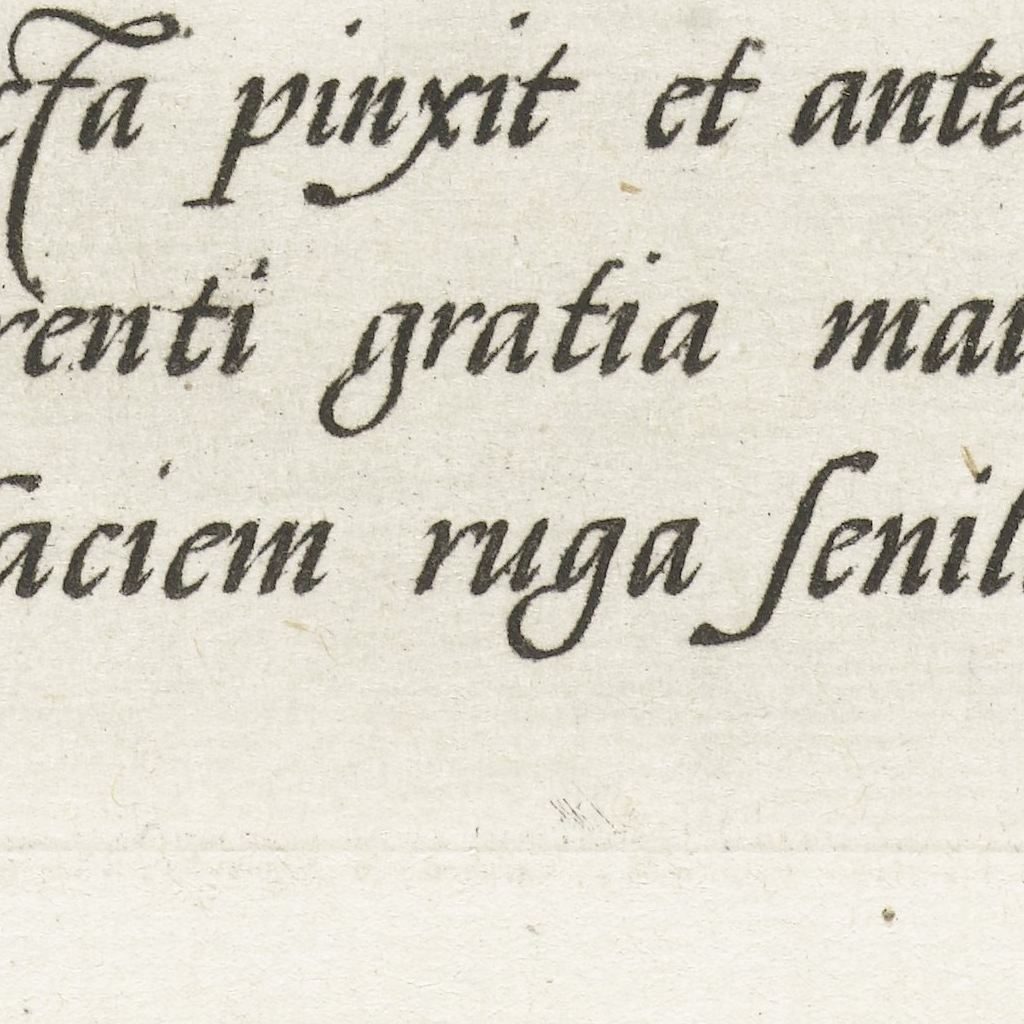 cta pinxit et ante
renti gratia man
faciem ruga ſenil